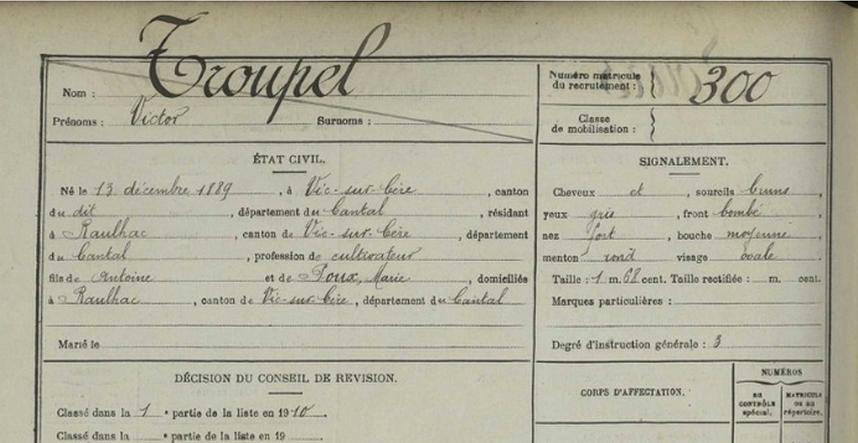 Nom : Troupel
Prénoms : Victor Surnoms :
Numéro matricule du recrutement : 300
Classe de mobilisation :
ÉTAT CIVIL.
Né le 13 décembre 1889, à Vic-sur-Cère, canton
du dit, département du Cantal, résidant
à Raulhac, canton de Vic-sur-Cère, département
du Cantal, profession de cultivateur
fils de Antoine et de Poux, Marie, domiciliés
à Raulhac, canton de Vic-sur-Cère, département du Cantal
Marié le
SIGNALEMENT.
Cheveux et, sourcils bruns,
yeux gris, front bombé,
nez fort, bouche moyenne,
menton rond visage ovale.
Taille : 1 m. 68 cent. Taille rectifiée : m. cent.
Marques particulières :
Degré d'instruction générale : 3
DÉCISION DU CONSEIL DE REVISION.
Classé dans la 1e partie de la liste en 1910.
Classé dans la e partie de la liste en 19
CORPS D'AFFECTATION.
NUMÉROS
AU CONTRÔLE spécial.
MATRICULE OU AU répertoire.